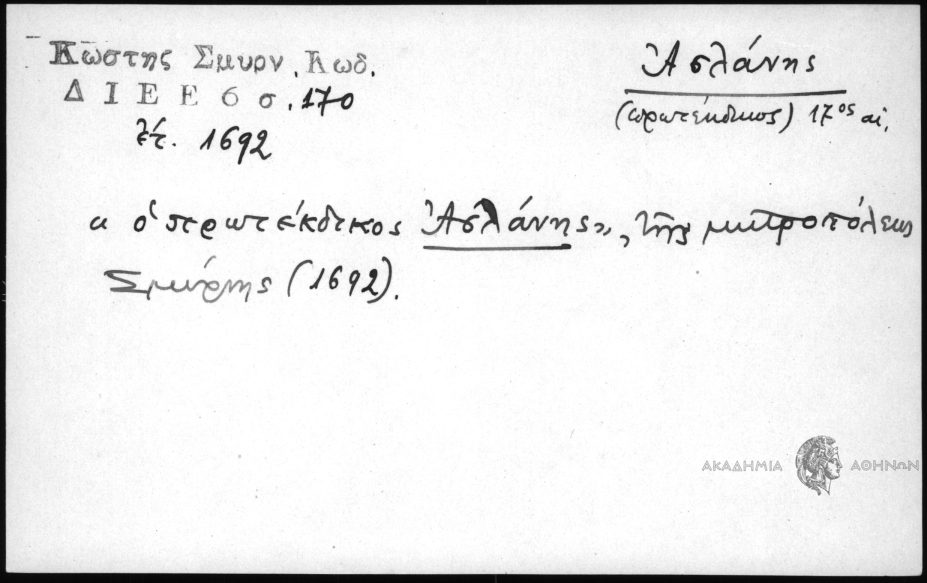 Κωστης Σμυρν. Κωδ.
Δ Ι Ε Ε 6 σ. 170
ἔτ. 1692
Ἀσλάνης
(πρωτέκδικος) 17ος αἰ.
« ὁ πρωτέκδικος Ἀσλάνης», τῆς μητροπόλεως
Σμύρνης (1692).
ΑΚΑΔΗΜΙΑ ΑΘΗΝΩΝ